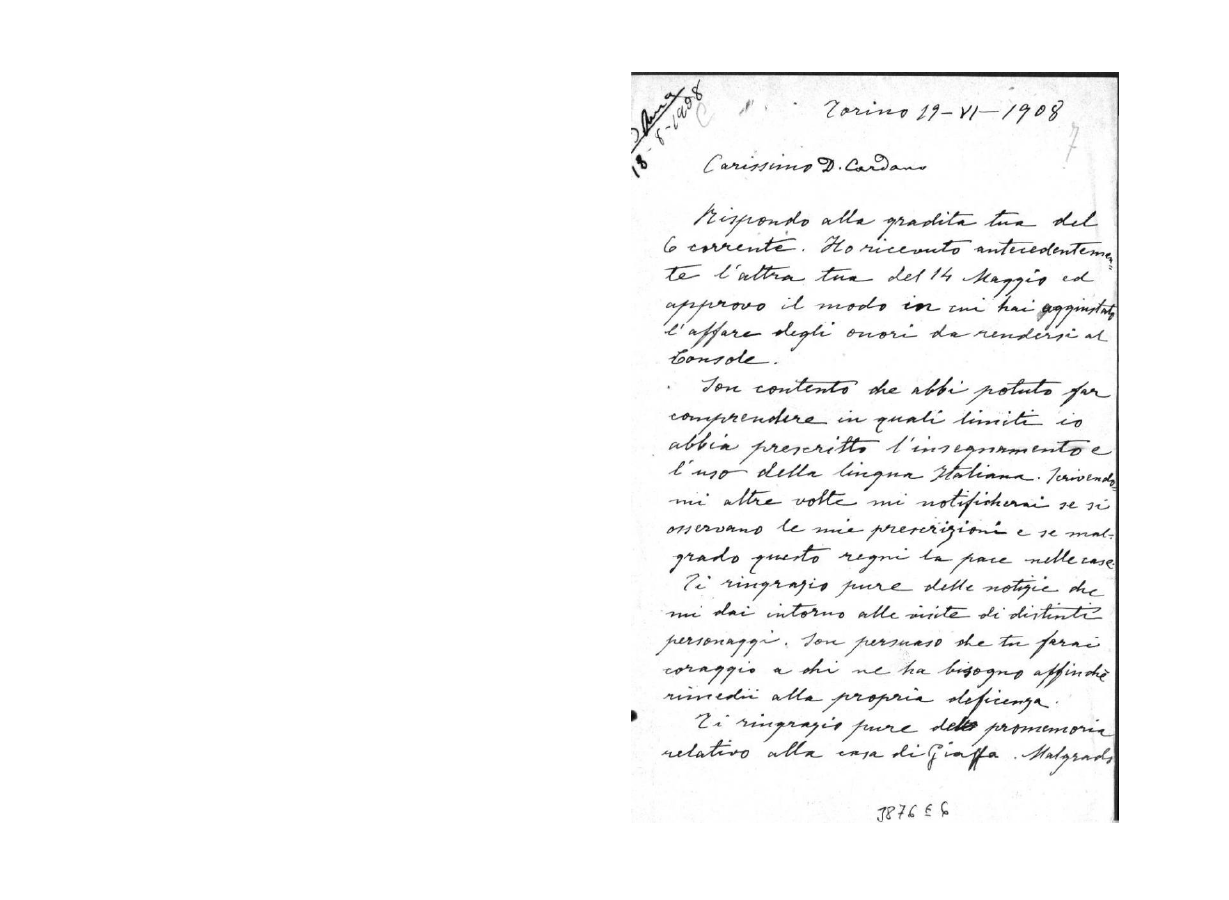 18-6-1908
Torino 19-VI-1908
7
Carissimo D. Cardano
Rispondo alla gradita tua del
6 corrente. Ho ricevuto antecedentemen=
te l'altra tua del 14 Maggio ed
approvo il modo in cui hai aggiustato
l'affare degli onori da rendersi al
Console.
Son contento che abbi potuto far
comprendere in quali limiti io
abbia prescritto l'insegnamento e
l'uso della lingua Italiana. Scrivendo=
mi altre volte mi notificherai se si
osservano le mie prescrizioni e se mal-
grado questo regni la pace nelle case
Ti ringrazio pure delle notizie che
mi dai intorno alle visite di distinti
personaggi. Son persuaso che tu farai
coraggio a chi ne ha bisogno affinchè
rimedii alla propria deficenza.
Ti ringrazio pure del promemoria
relativo alla casa di Giaffa. Malgrado
3876 E 6